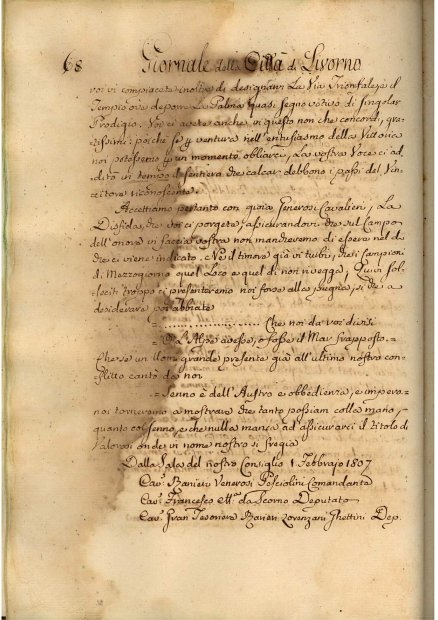 68 Giornale della Città di Livorno
voi vi compiacete inoltre di designarci La Via Trionfale, e il
Tempio ove deporre La Palma quasi segno votivo di singolar
Prodigio. Voi ci avete anche in questo non che concordi, gra-
tissimi; poiche se per ventura nell'entusiasmo della Vittoria
noi potessemo per un momento obliare, La vostra Voce ci ad-
dita in tempo il sentiero che calcar debbono i passi del Vin-
citore riconoscente.
Accettiamo pertanto con gioia generosi Cavalieri, La
Disfida, che voi ci porgete; assicurandovi che sul Campo
dell'onore in faccia vostra non mancheremo di essere nel dì
che ci viene indicato. Nè il timore già vi turbi, che i Campioni
di Mezzogiorno quel Loco e quel dì non vi vegga,
solleciti troppo ci presenteremo noi forse alla pugna, sì che a
desiderare poi abbiate
.................. Che noi da voi divisi
= O L'Alpe avesse, o fosse il Mar frapposto. =
Che se un Uom grande presente già all'ultimo nostro con-
flitto cantò da noi
= Senno è dell'Austro e obbedienza, e impero =
noi torneremo a mostrare che tanto possiam colla mano,
quanto col senno, e che nulla manca ad assicurarci il titolo di
Valorosi onde in nome nostro si fregia
Dalla Sala del nostro Consiglio 1 Febbrajo 1807
Cav. Ranieri Venerosi Pesciolini Comandante
Cav. Francesco M.a da Scorno Deputato
Cav. Gran Tesoriere Ranieri Lorenzani Ghettini Dep.